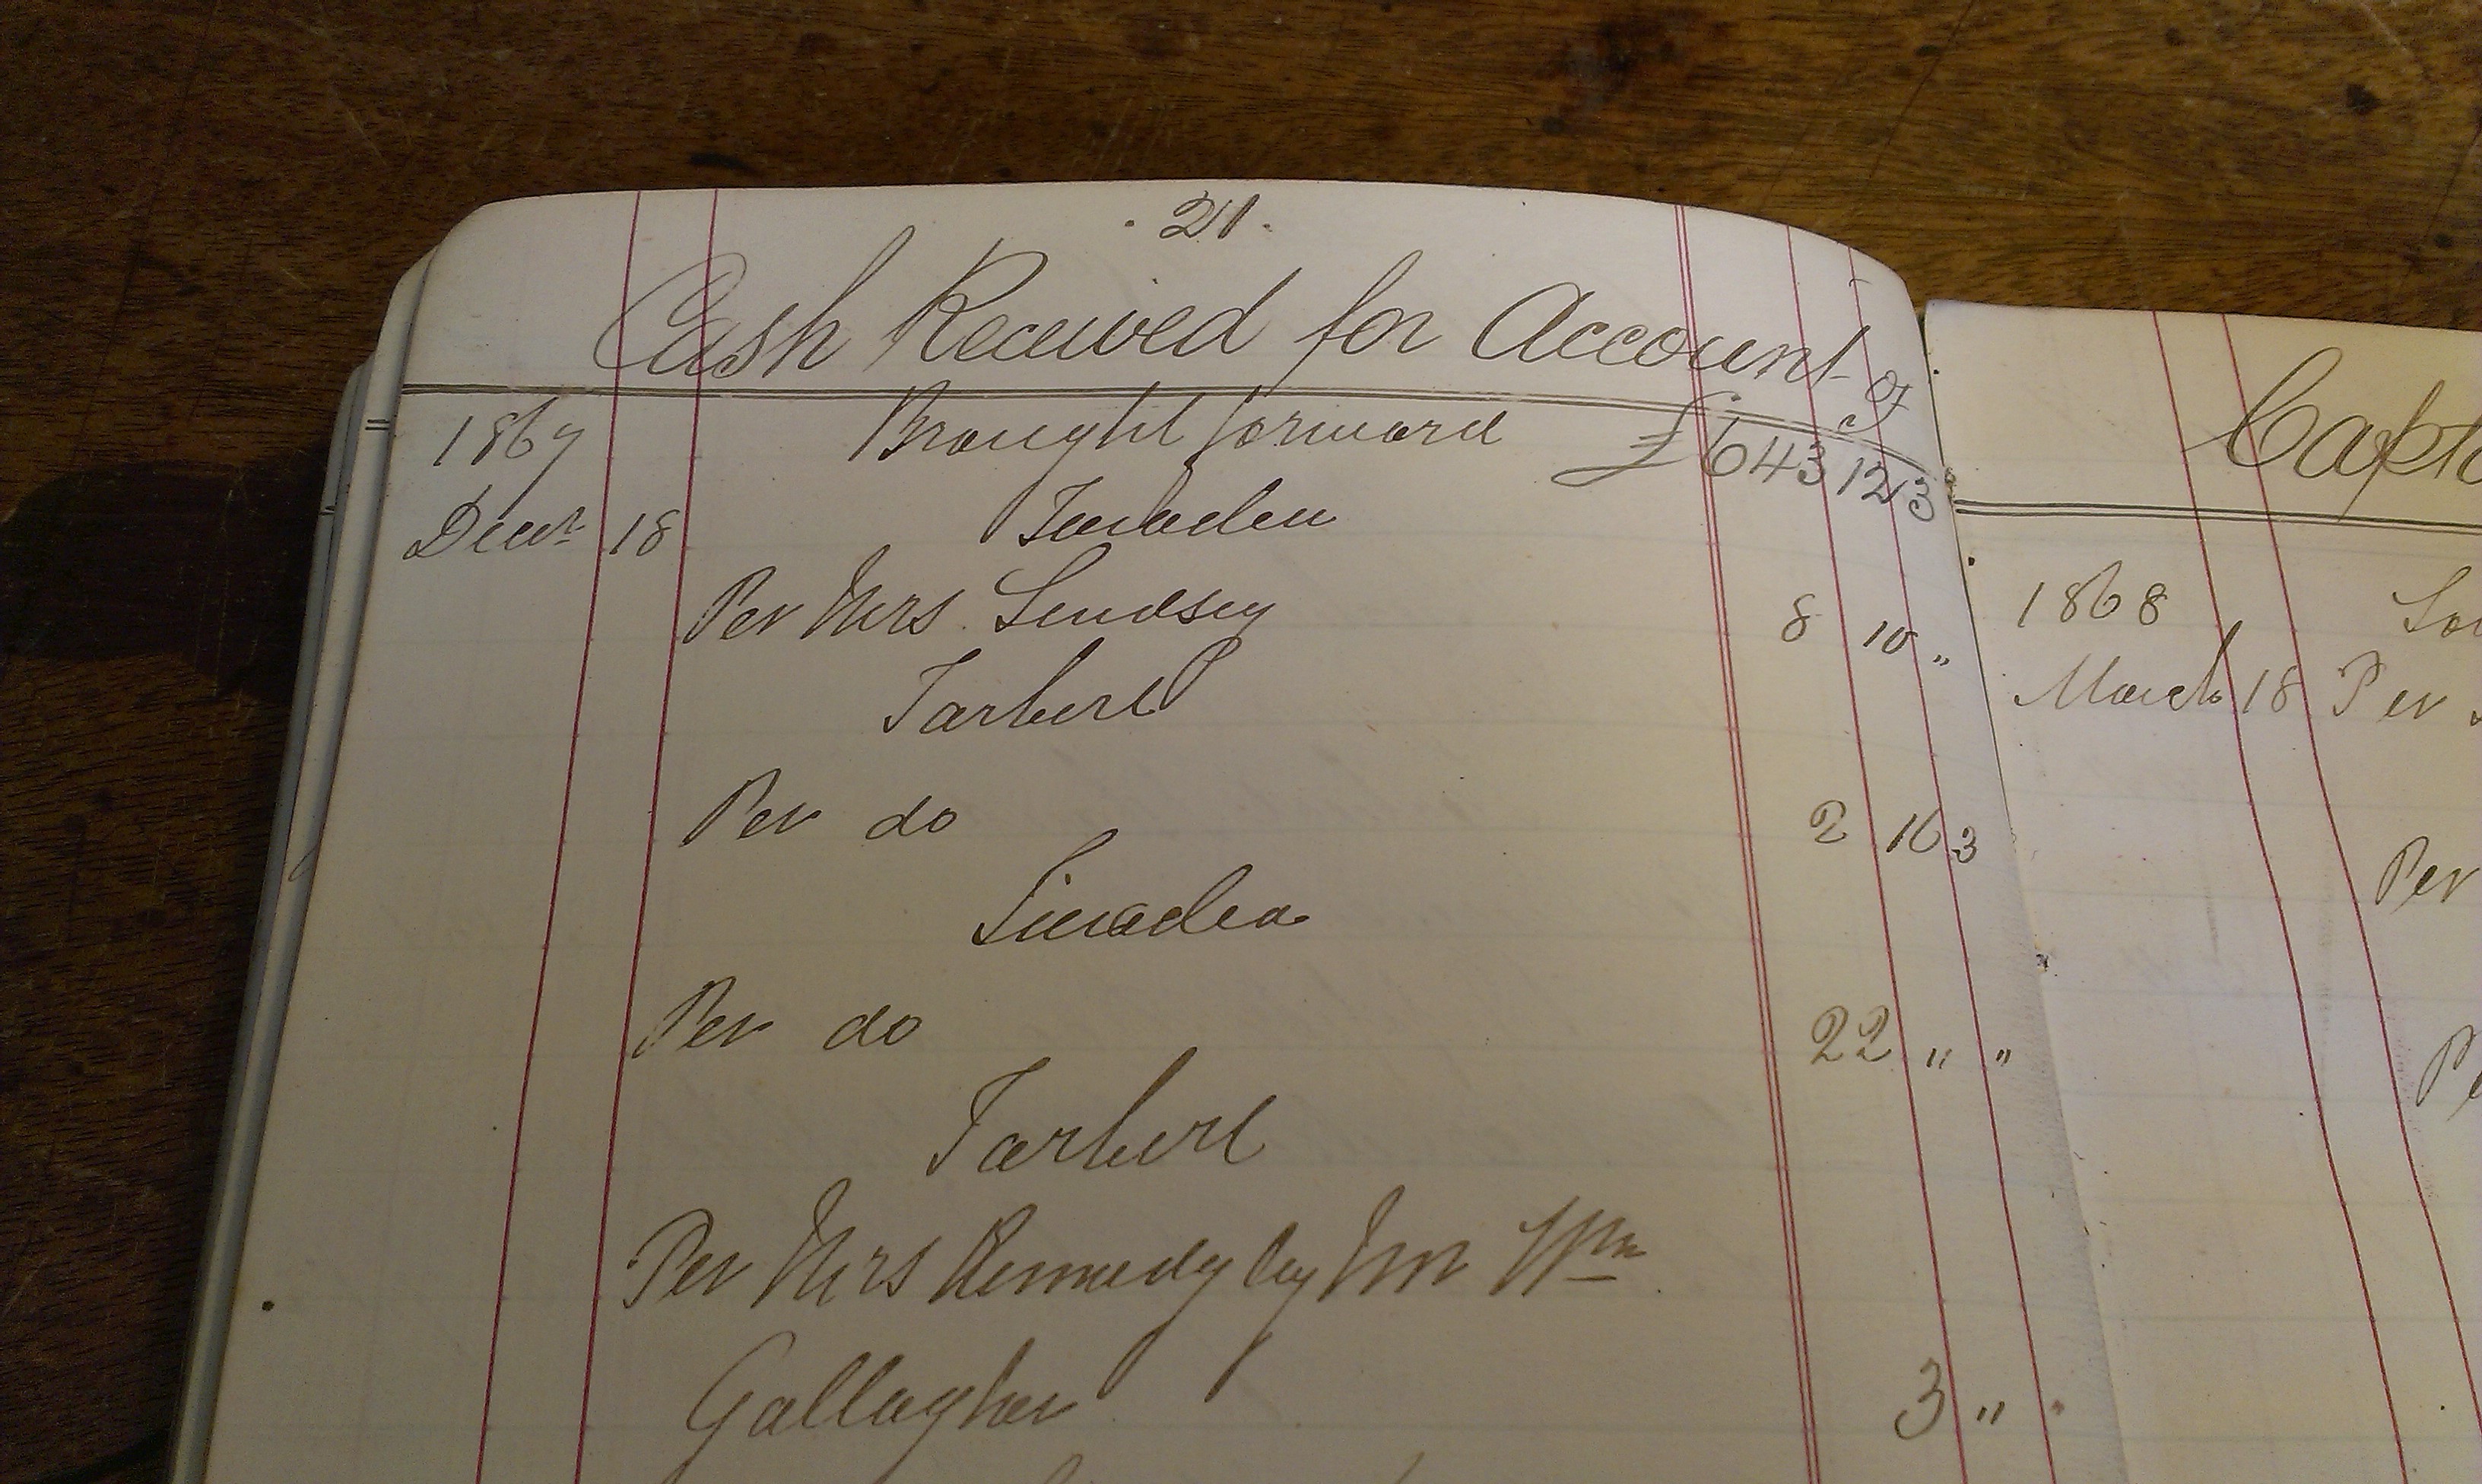 . 21 .
Cash Received for Account of
1867 Brought forward £643 12 3
Decr 18
Per Mrs Lindsey 8 10 "
Tarbert
Per do 2 16 3
Per do 22 " "
Tarbert
Per Mrs Kennedy by Mr Wm
Gallagher 3 " "
Capt
1868
March 18 Per
Per